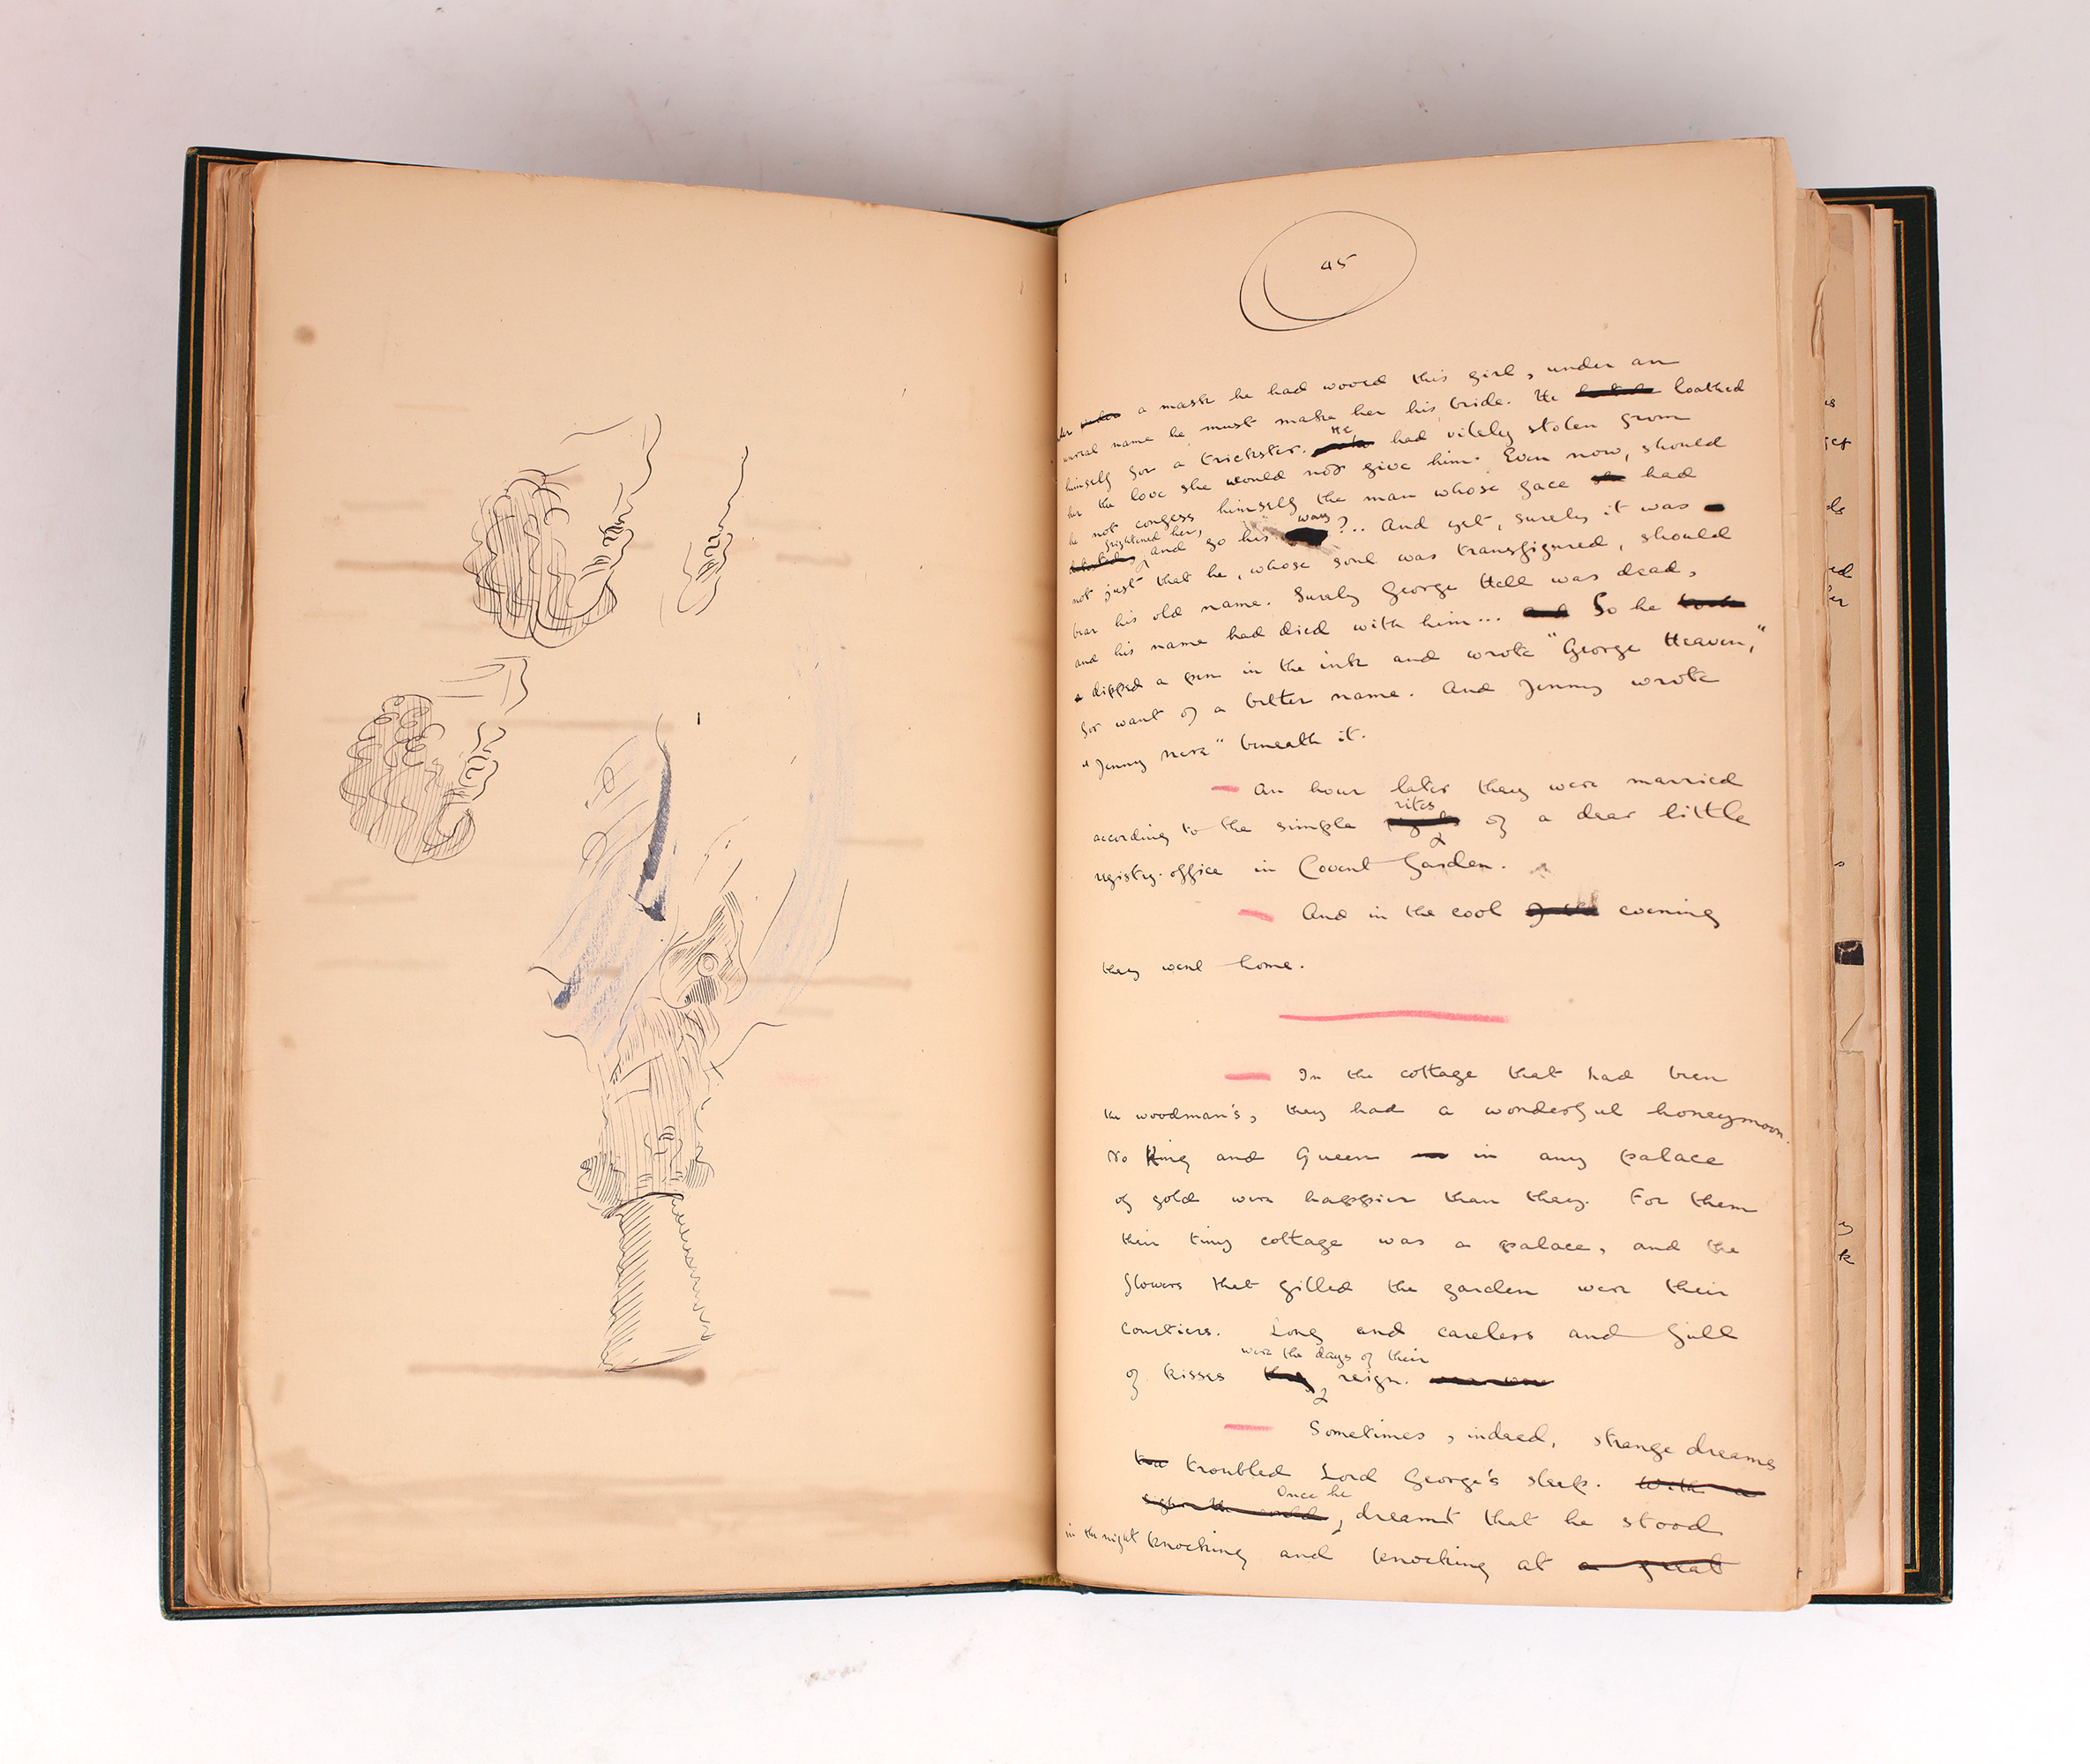 45
under a mask he had wooed this girl, under an
unreal name he must make her his bride. He loathed
himself for a trickster. He had vilely stolen from
her the love she would not give him. Even now, should
he not confess himself the man whose face had
frightened her, and go his way?.. And yet, surely it was
not just that he, whose soul was transfigured, should
bear his old name. Surely George Hell was dead,
and his name had died with him... So he
dipped a pen in the ink and wrote "George Heaven,"
for want of a better name. And Jenny wrote
"Jenny Mere" beneath it.
An hour later they were married
according to the simple rites of a dear little
registry-office in Covent Garden.
And in the cool evening
they went home.
In the cottage that had been
the woodman's, they had a wonderful honeymoon.
No King and Queen in any palace
of gold were happier than they. For them
their tiny cottage was a palace, and the
flowers that filled the garden were their
courtiers. Long and careless and full
of kisses were the days of their reign.
Sometimes, indeed, strange dreams
troubled Lord George's sleep. With a
Once he dreamt that he stood
in the night knocking and knocking at a great